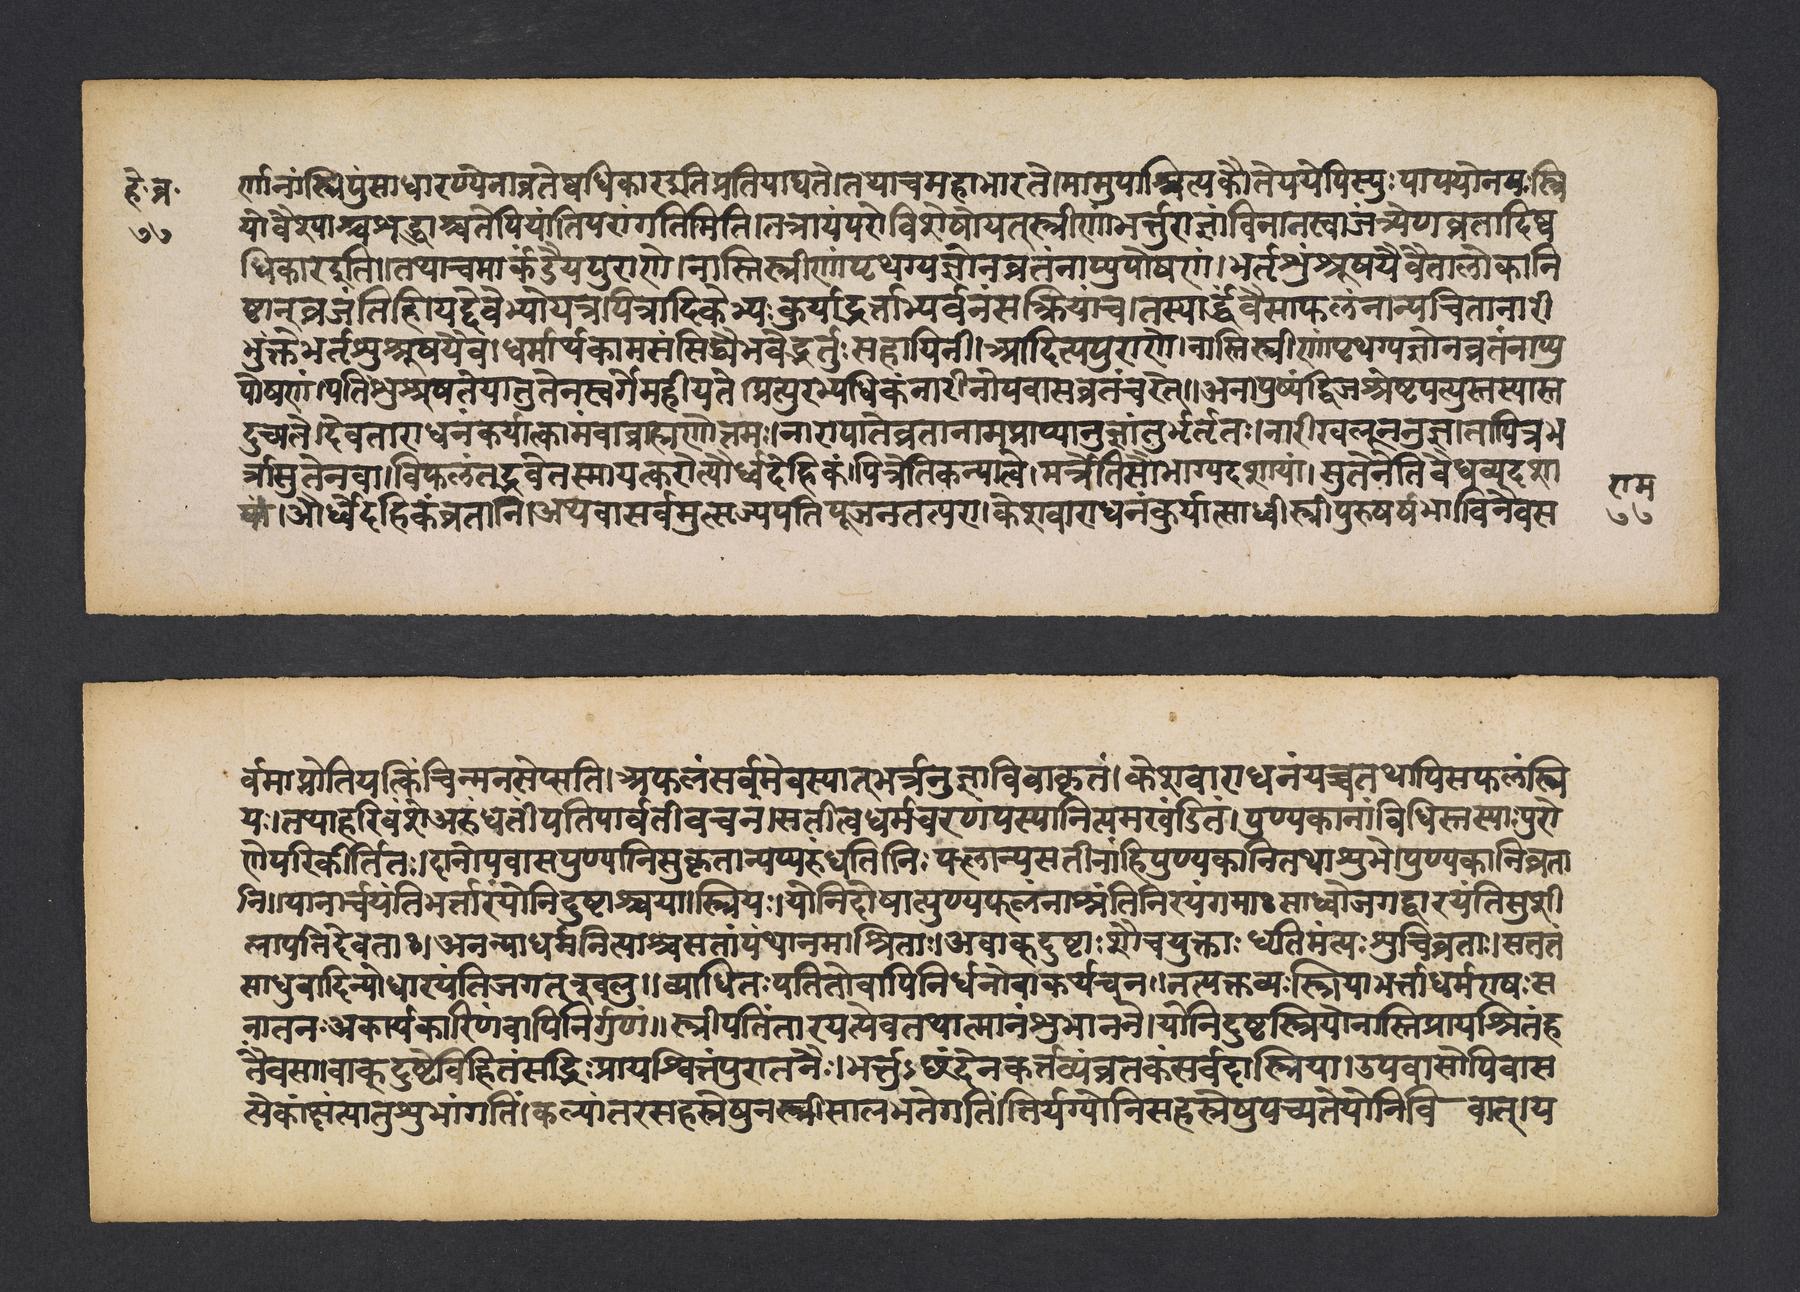 हे॰व्र॰
७७
र्णानांस्त्रिपुंसाधारण्येनाव्रतेष्वधिकारइतिप्रतिपाद्यते।तथाचमहाभारते।मामुपाश्रित्यकौंतेययेपिस्युःपापयोनयःस्त्रि
योवैश्याश्चशूद्राश्चतेपियांतिपरांगतिमिति।तत्रायंपरोविशेषोयत्स्त्रीणांभर्त्तुराज्ञांविनानस्वाजंत्र्येणव्रतादिष्व
धिकारइति।।तथाचमार्कंडेयपुराणे।नास्तिस्त्रीणांपृथग्यज्ञोनव्रतंनाप्युपोषणं।भर्तृशुंश्रूषयैवैतालोकानि
ष्टानव्रजंतिहि।यद्देवेभ्योयत्रपित्रादिकेभ्यःकुर्याद्भर्त्ताभ्यर्चनंसत्क्रियांच।तस्यार्द्धंवैसाफलंनान्यचितानारी
भुंक्तेभर्तृशुश्रूषयैव।धर्मार्थकामसंसिद्ध्यैभवेद्भर्तुःसहायिनी।आदित्यपुराणे।नास्तिस्त्रीणांपृथग्यज्ञोनव्रतंनाप्यु
पोषणं।पतिंशुश्रूषतेयातुतेनस्वर्गेमहीयते।पत्युरभ्यधिकंनारीनोपवासव्रतंचरेत्।।अनापुष्यंद्विजश्रेष्टपत्युस्तस्यास्त
दुच्यते।देवताराधनंकर्यात्कामंवाब्राह्मणोत्तमः।नारीपतिव्रतानामप्राप्यानुज्ञांतुर्भर्तृतः।नारीखलूननुज्ञातापित्रभ
र्त्रासुतेनवा।विफलंतद्भवेत्तस्मायत्करोत्यौर्ध्वदेहिकं।पित्रेतिकन्यात्वे।मर्त्रेतिसौभाग्यदशायां।सुतेनेतिवैधव्यदशा
यां।और्ध्वदेहिकंव्रतानि।अथवासर्वमुत्सृज्यपतिपूजनतत्परा।केशवाराधनंकुर्यात्साध्वीस्त्रीपुरुषर्षभ।विनैवस
राम
७७
र्वमाप्नोतियत्किंचिन्मनसेप्सति।अफलंसर्वमेवस्यात्भर्त्रनुज्ञाविवाकृतं।केशवाराधनंयच्चतथापिसफलंस्त्रि
यः।तथाहरिवंशेअरुंधतींपतिपार्वतीवचनं।सतीत्वधर्मचरणपस्यानित्यमखंडितं।पुण्यकानांविधिस्तस्याःपुरा
णेपरिकीर्तितः।दानोपवासपुण्यानिसुकृतान्यप्यरुंधतिनिःफलान्यसतीनांहिपुण्यकानितथाशुभे।पुण्यकानिव्रता
नि।।यानार्चयंतिभर्त्तारंयोनिदुष्टाश्चया।स्त्रियः।योनिदोषात्पुण्यफलंनाप्नंतिनिरयंगमाःसाध्वोजगद्धारयंतिसुशी
लापतिदेवताः।अनन्याधर्मनित्याश्चसतांपंथानमाश्रिताः।अवाक्दुष्टाःशौचयुक्ताःधृतिमंत्यःशुचिव्रताः।सततं
साधुवादिन्योधारयंतिजगत्खलु।।व्याधितःपतितोवापिनिर्धनोवाकथंचन।।नत्यक्तव्यःस्त्रियाभर्त्ताधर्मएषःस
नातनःअकार्यकारिणंवापिनिर्गुणं।।स्त्रीपतिंतारयत्येवतथात्मानंशुभानने।योनिदुष्टस्त्रियोनास्तिप्रायश्चितंह
तैवसा।वाक्दुष्टेविहितंसद्भिःप्रायश्चित्तंपुरातनैः।भर्त्तुऽछंदेनकर्त्तव्यंव्रतकंसर्वदास्त्रिया।उपवासोपिवास
त्येकांक्षंत्यातुशुभांगतिं।कल्पांतरसहस्रेषुनस्त्रीसालभतेगतिं।तिर्यग्योनिसहस्रेषुपच्यतेयोनिवि—वात्।य